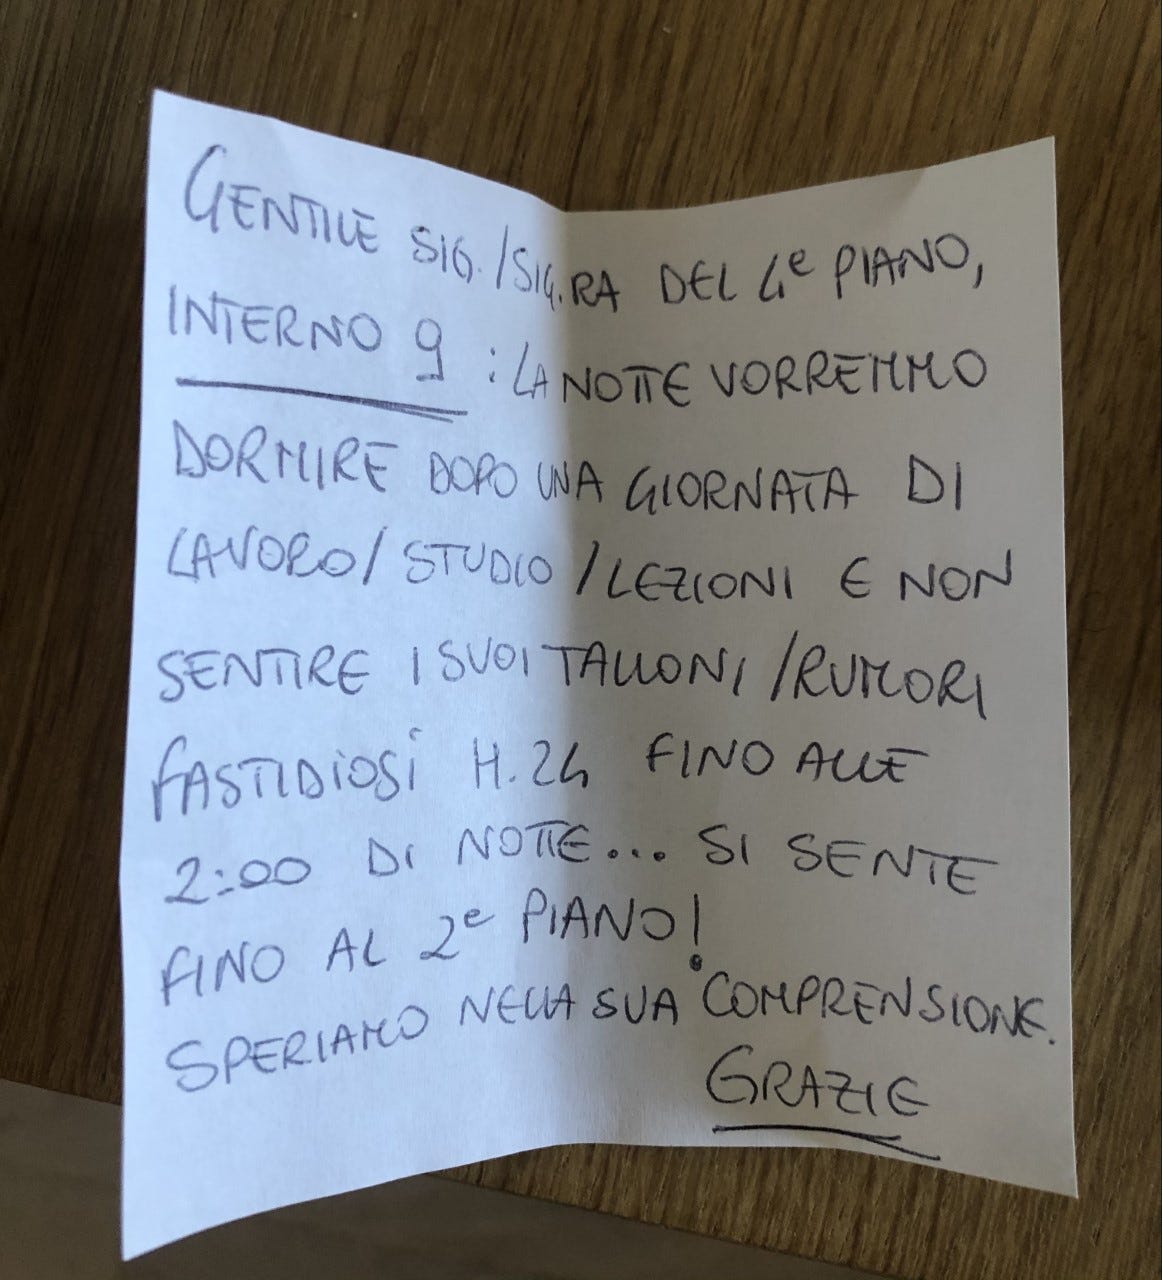 GENTILE SIG./SIG.RA DEL 4e PIANO,
INTERNO 9 : LA NOTTE VORREMMO
DORMIRE DOPO UNA GIORNATA DI
LAVORO/STUDIO/LEZIONI E NON
SENTIRE I SUOI TALLONI/RUMORI
FASTIDIOSI H.24 FINO ALLE
2:00 DI NOTTE... SI SENTE
FINO AL 2e PIANO!
SPERIAMO NELLA SUA COMPRENSIONE.
GRAZIE